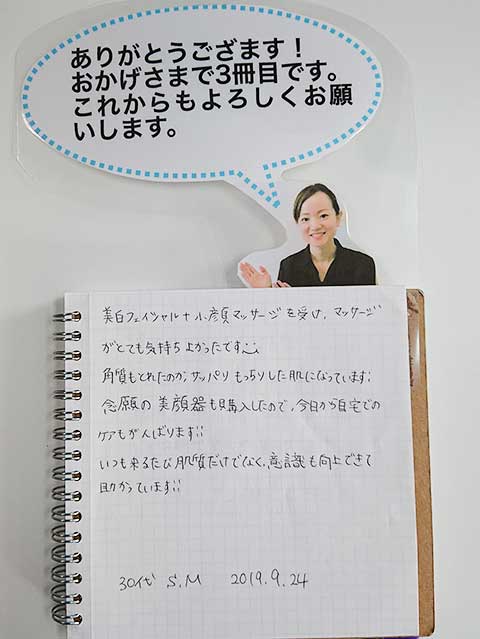 ありがとうござます！
おかげさまで3冊目です。
これからもよろしくお願
いします。
美白フェイシャル＋小顔マッサージを受け、マッサージ
がとても気持ちよかったです
角質もとれたのか、サッパリもっちりした肌になっています!!
念願の美顔器も購入したので、今日から自宅での
ケアもがんばります!!
いつも来るたび肌質だけでなく、意識も向上できて
助かっています!!
30代 S.M 2019.9.24